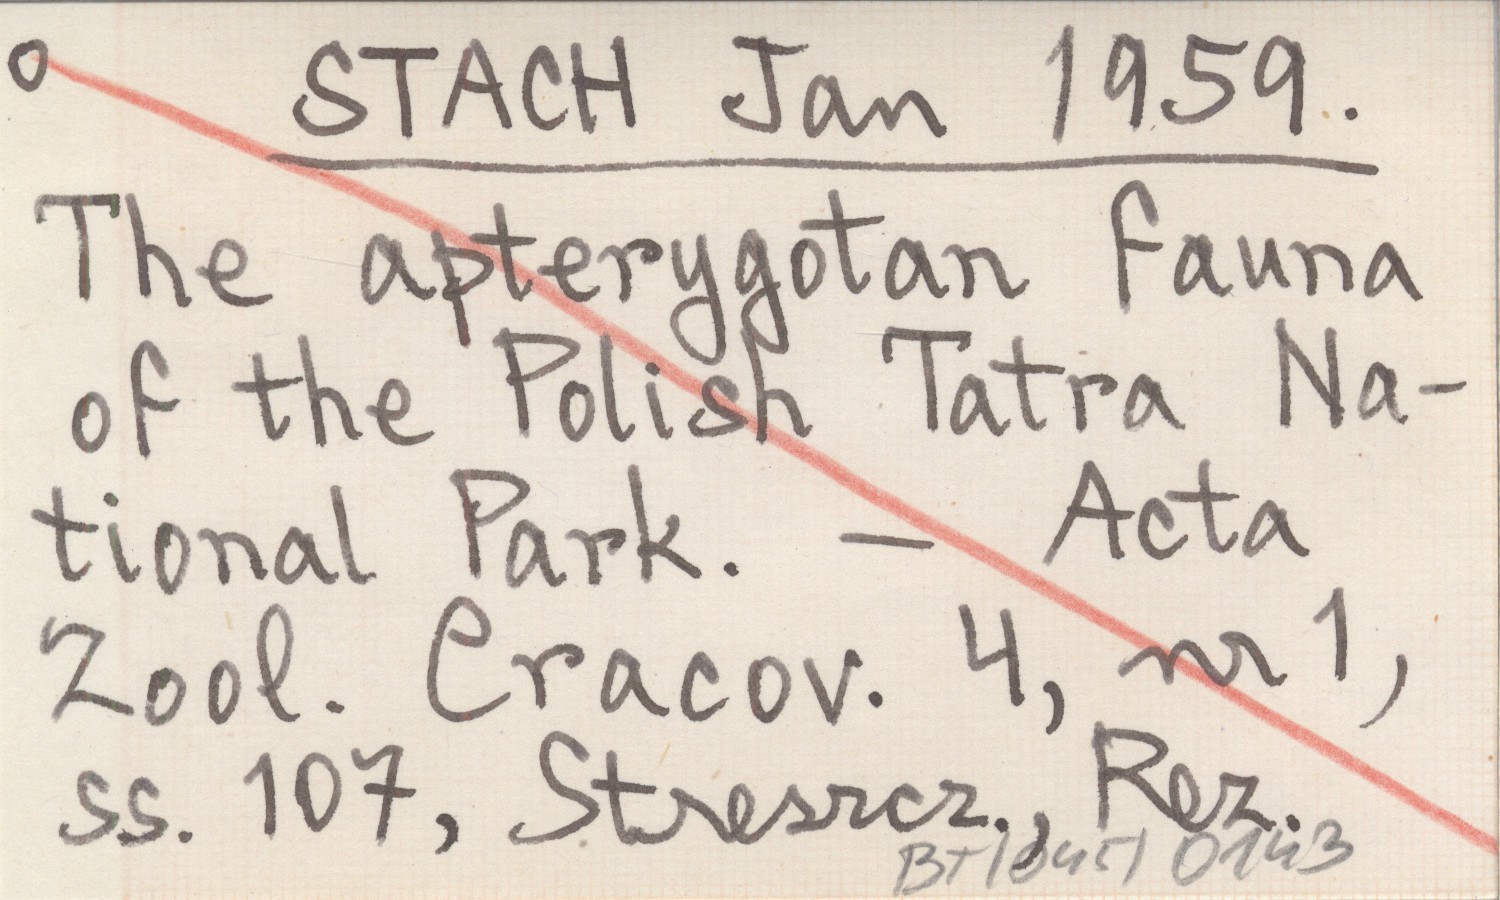 o STACH Jan 1959.
The apterygotan fauna
of the Polish Tatra Na-
tional Park. — Acta
Zool. Cracov. 4, nr 1,
ss. 107, Streszcz., Rez.
0143